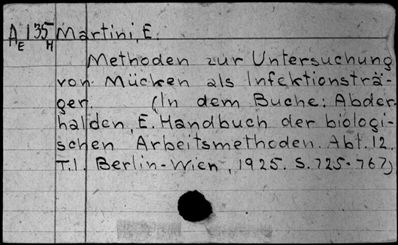 AE 135H Martini, E.
Methoden zur Untersuchung
von Mücken als Infektionsträ-
ger. (In dem Buche: Abder-
halden, E. Handbuch der biologi-
schen Arbeitsmethoden. Abt. 12.
T.1. Berlin-Wien, 1925. S. 725-767)